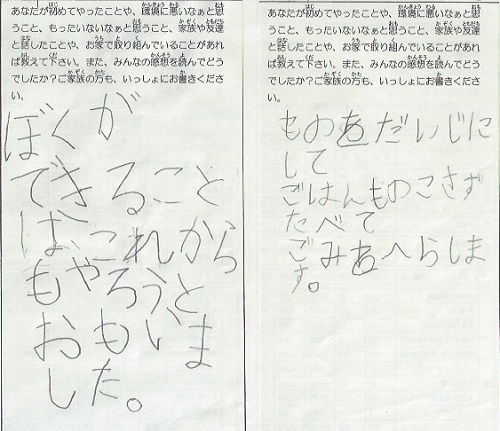 あなたが初めてやったことや、環境に悪いなぁと思
うこと、もったいないなぁと思うこと、家族や友達
と話したことや、お家で取り組んでいることがあれ
ば教えて下さい。また、みんなの感想を読んでどう
でしたか？ご家族の方も、いっしょにお書きくださ
い。
ぼくが
できること
は、これから
もやろうと
おもいま
した。
あなたが初めてやったことや、環境に悪いなぁと思
うこと、もったいないなぁと思うこと、家族や友達
と話したことや、お家で取り組んでいることがあれ
ば教えて下さい。また、みんなの感想を読んでどう
でしたか？ご家族の方も、いっしょにお書きくださ
い。
ものをだいじに
して
ごはんものこさず
たべて
ごみをへらしま
す。